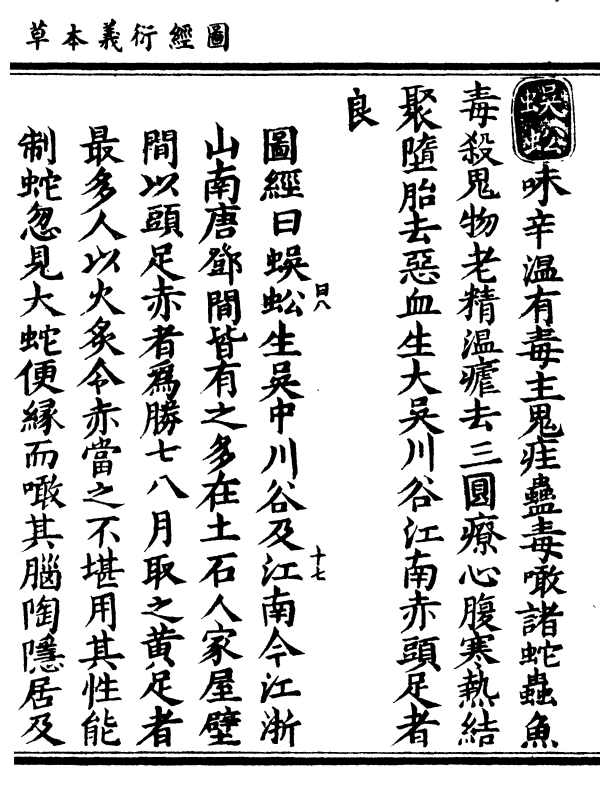 圖經衍義本草
蜈蚣味辛溫有毒主鬼疰蠱毒噉諸蛇蟲魚
毒殺鬼物老精溫瘧去三圓療心腹寒熱結
聚墮胎去惡血生大吳川谷江南赤頭足者
良
圖經曰蜈蚣生吳中川谷及江南今江浙
山南唐鄧間皆有之多在土石人家屋壁
間以頭足赤者爲勝七八月取之黄足者
最多人以火炙令赤當之不堪用其性能
制蛇忽見大蛇便緣而噉其腦陶隱居及
日八
十七